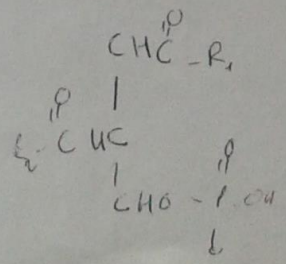 O
CHC - R₁
O
C HC
O
CHO - P . OH